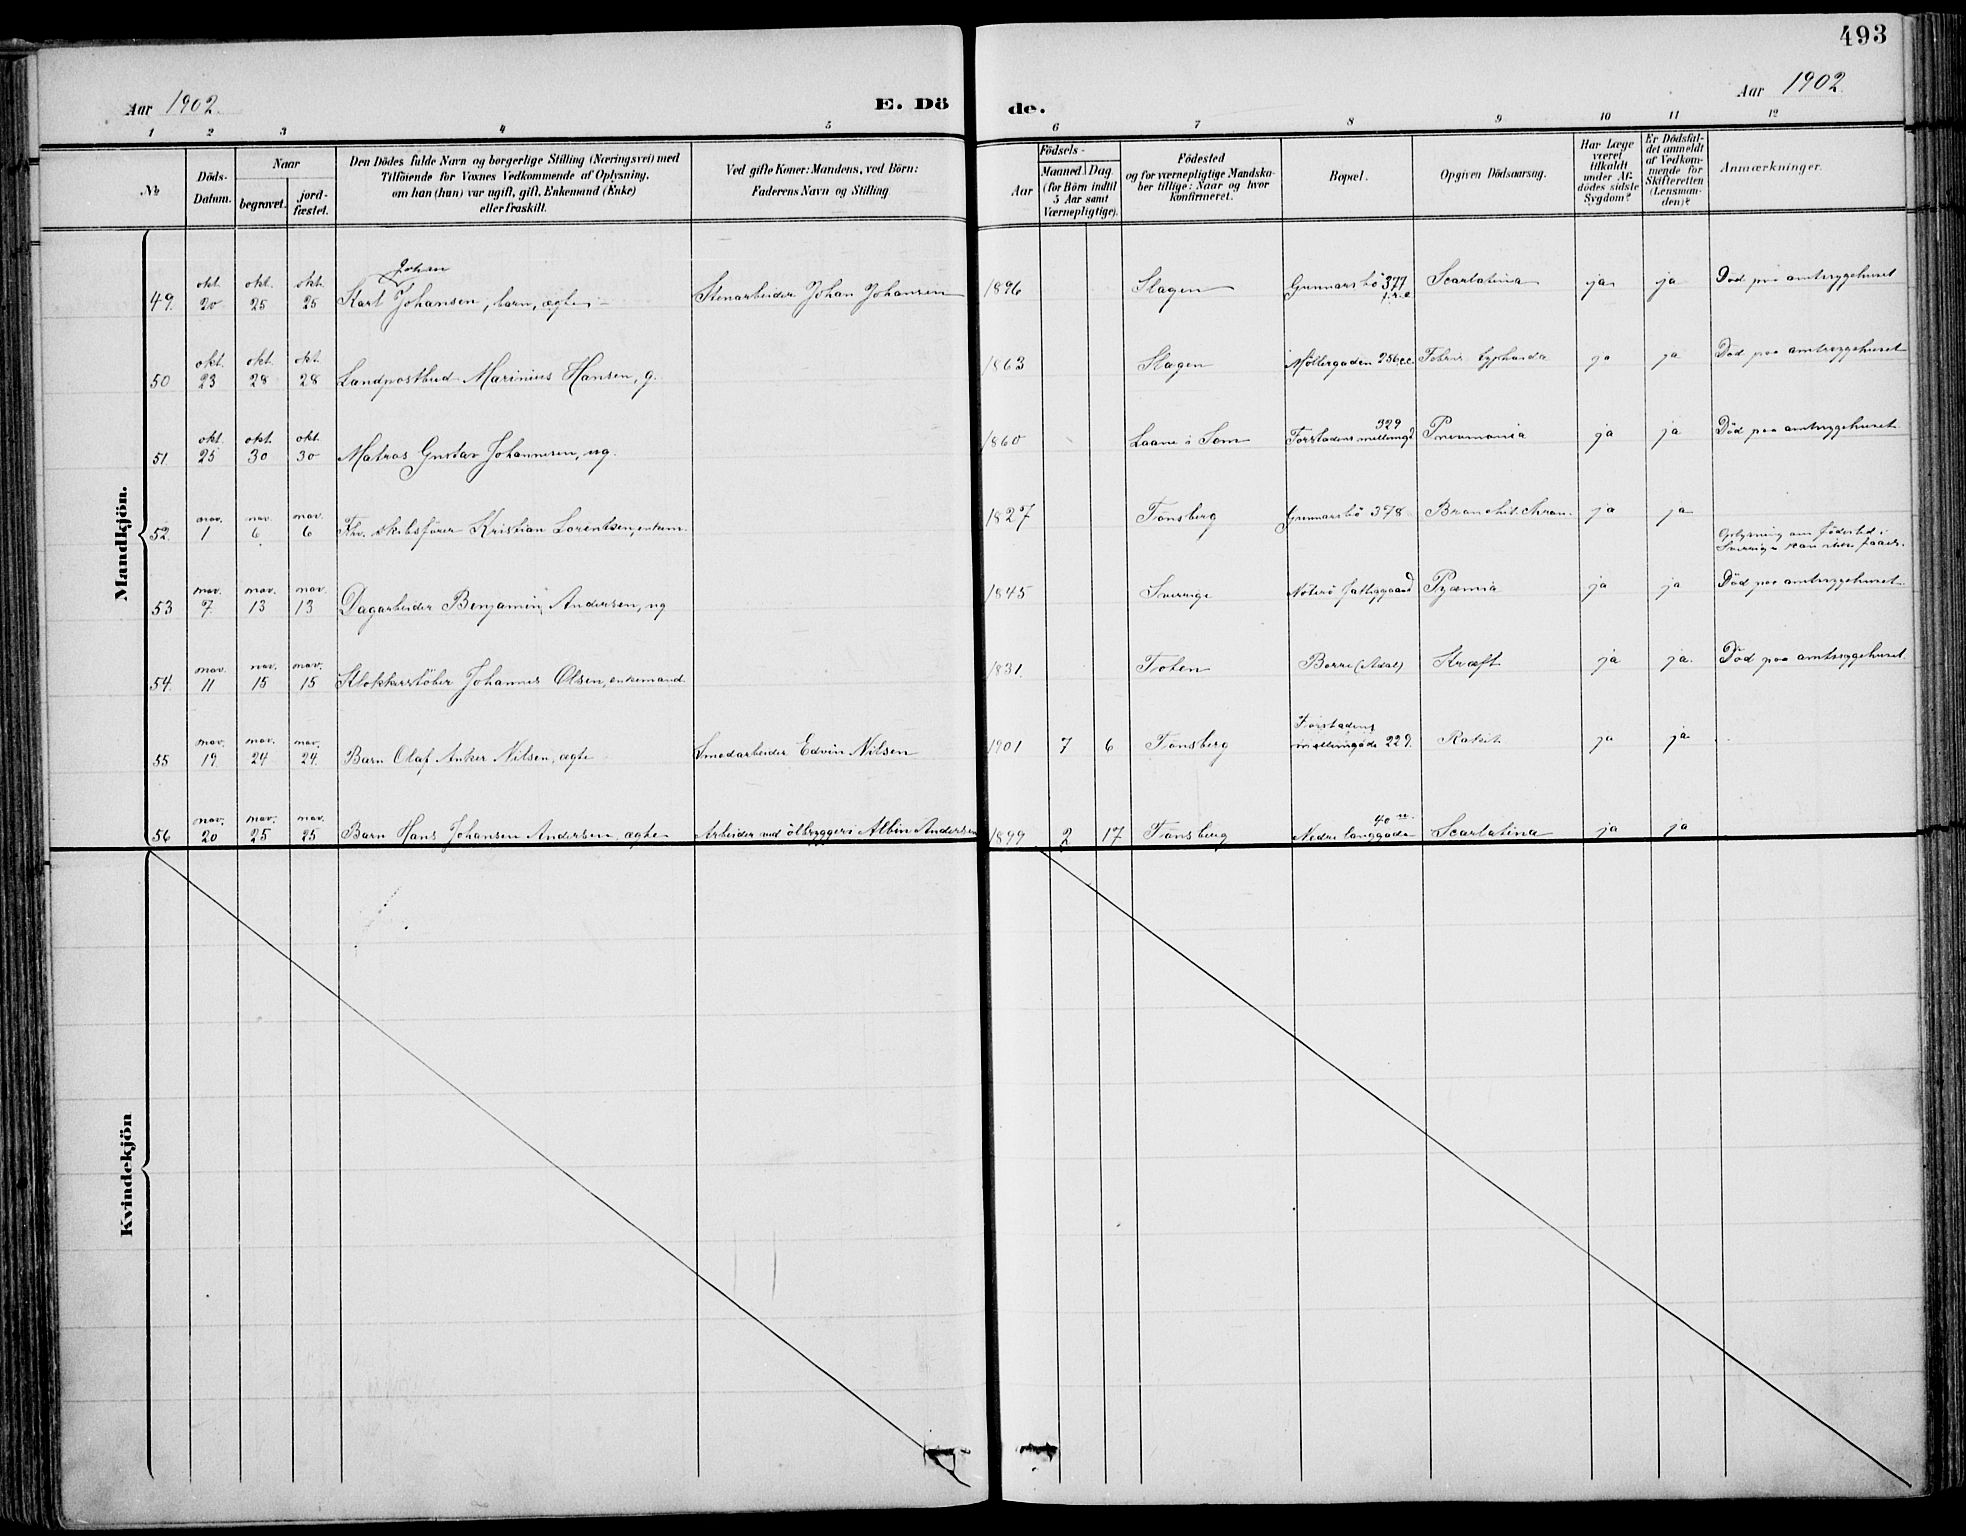 493
Aar 1902.
E. Dö
de.
Aar 1902.
1 2 3 4 5 6 7 8 9 10 11 12
№
Döds-
Datum.
Naar
begravet.
jord-
fæstet.
Den Dödes fulde Navn og borgerlige Stilling (Næringsvei) med
Tilföiende for Voxnes Vedkommende af Oplysning,
om han (hun) var ugift, gift, Enkemand (Enke)
eller fraskilt.
Ved gifte Koner: Mandens, ved Börn:
Faderens Navn og Stilling
Födsels-
Aar
Maaned
Dag.
(for Börn indtil
5 Aar samt
Værnepligtige).
Födested
og for værnepligtige Mandska-
ber tillige: Naar og hvor
konfirmeret.
Bopæl.
Opgiven Dödsaarsag.
Har Læge
været
tilkaldt
under Af-
dödes sidste
Sygdom?
Er Dödsfal-
det anmeldt
af Vedkom-
mende for
Skifteretten
(Lensman-
den)?
Anmærkninger.
Mandkjön.
49. okt. 20 okt. 25 okt. 25 Karl Johan Johansen, barn, ægte Stenarbeider Johan Johansen 1896 Slagen Gunnarsbö 377 Scarlatina ja ja Död paa amtssygehuset
50 okt. 23 okt. 28 okt. 28 Landpostbud Marinius Hansen, g. 1863 Slagen Möllergaden 256 Febris typhoida ja ja Död paa amtssygehuset
51. okt. 25 okt. 30 okt. 30 Matros Gustav Johannesen, ug. 1860 Laane i Sem Forstadens mellemgd. 329 Pneumonia ja ja Död paa amtssygehuset
52. nov. 1 nov. 6 nov. 6 Fhv. skibsförer Kristian Lorentsen, enkem. 1827 Tönsberg Gunnarsbö 378 Bronchit. chron. ja ja
53 nov. 7. nov. 13 nov. 13 Dagarbeider Benjamin Andersen, ug 1845 Sverrige Nöterö fattiggaard Pyæmia ja ja Oplysning om födested i
Sverrige kan ikke faaes.
Död paa amtssygehuset
54. nov. 11 nov. 15 nov. 15 Klokkestöber Johannes Olsen, enkemand. 1831. Toten Borre (Adal) Kræft ja ja. Död paa amtssygehuset
55 nov. 19. nov. 24 nov. 24. Barn Olaf Anker Nilsen, ægte Smedarbeider Edvin Nilsen 1901 7 6 Tönsberg Forstadens
mellemgade 229. Rakit ja ja
56 nov. 20 nov. 25 nov. 25 Barn Hans Johansen Andersen, ægte Arbeider ved ölbryggeri Albin Andersen 1899 2 17 Tönsberg Nedre langgade 40 Scarlatina ja ja
Kvindekjön